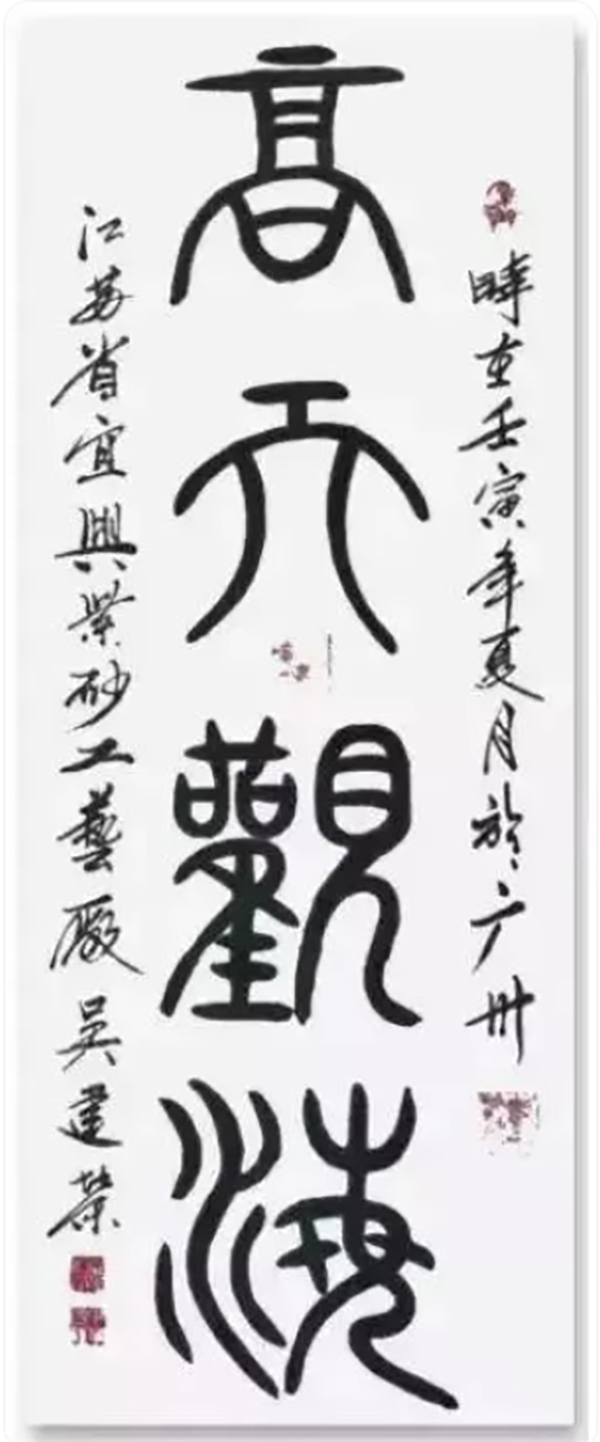 時在壬寅年夏月於广州
高天觀海
江苏省宜興紫砂工藝厰吴建荣